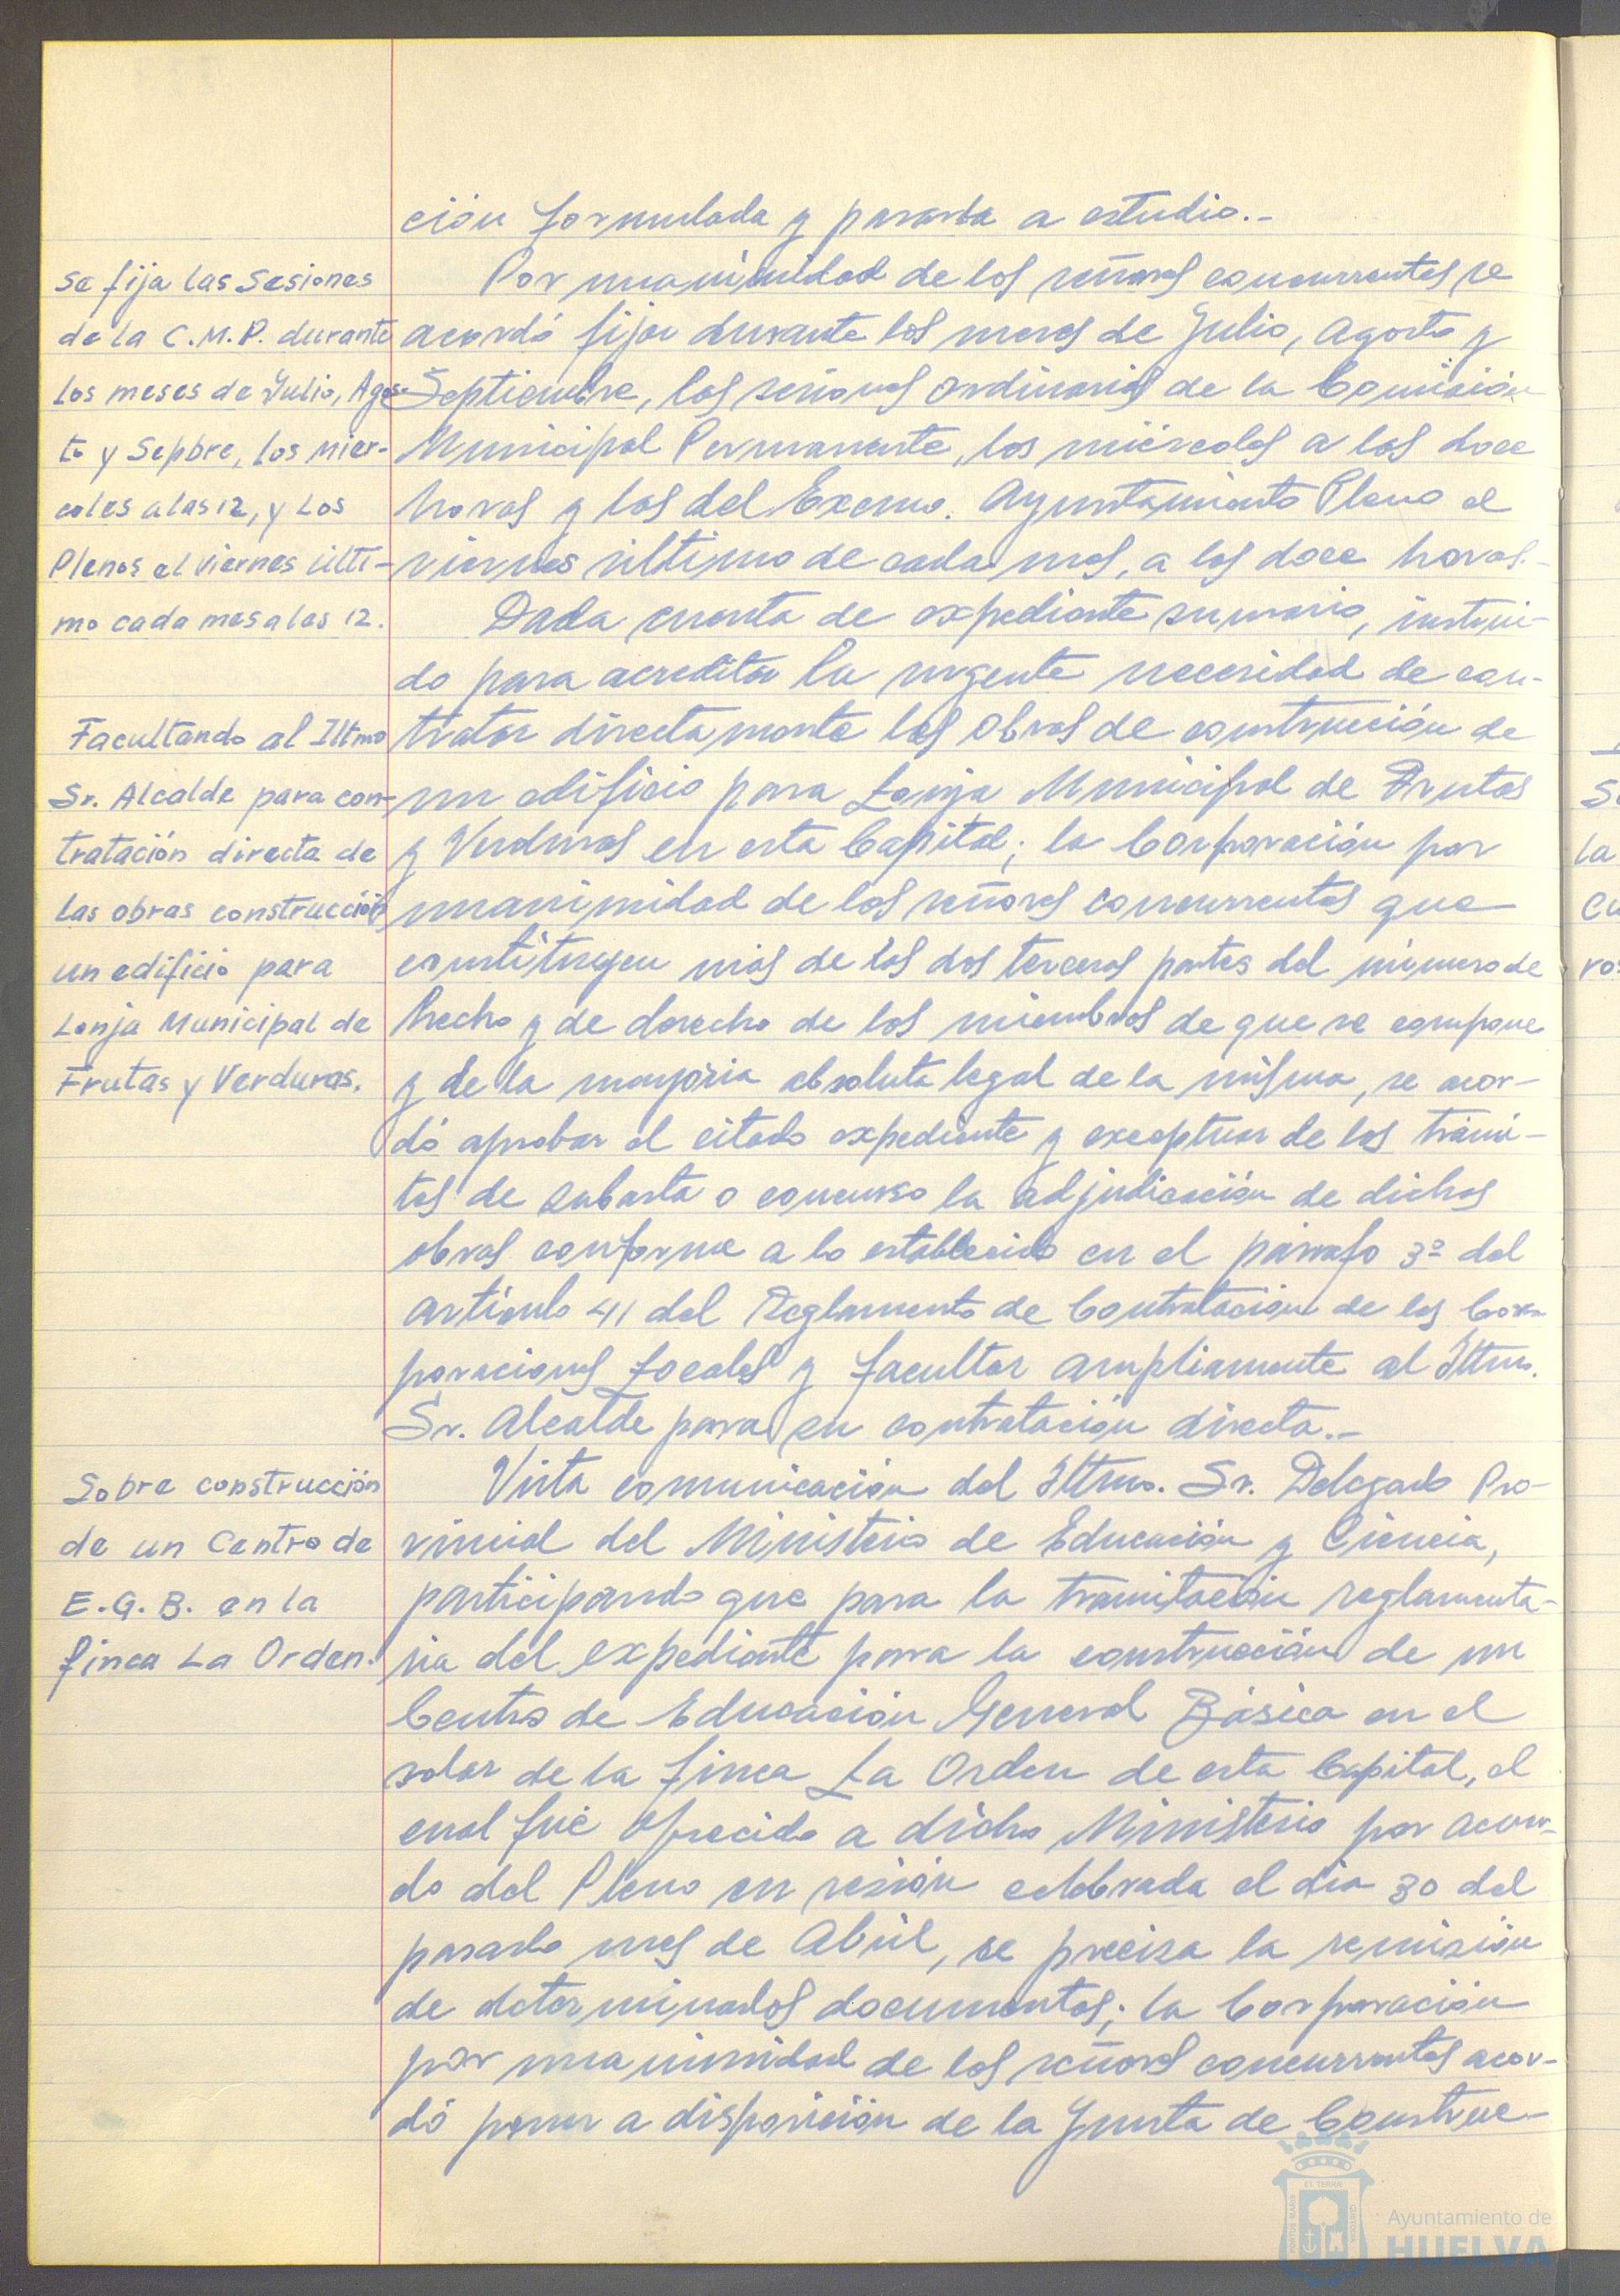 ción formulada y pasarla a estudio.-
Se fija las Sesiones
de la C.M.P. durante
los meses de Julio, Agos-
to y Sepbre, los Mier-
coles a las 12, y los
Plenos el viernes últi-
mo cada mes a las 12.
Por unanimidad de los señores concurrentes se
acordó fijar durante los meses de Julio, Agosto y
Septiembre, las sesiones ordinarias de la Comisión
Municipal Permanente, los miércoles a las doce
horas y las del Excmo. Ayuntamiento Pleno el
viernes último de cada mes, a las doce horas.-
Facultando al Iltmo
Sr. Alcalde para con-
tratación directa de
las obras construcción
un edificio para
Lonja Municipal de
Frutas y Verduras.
Dada cuenta de expediente sumario, instrui-
do para acreditar la urgente necesidad de con-
tratar directamente las obras de construcción de
un edificio para Lonja Municipal de Frutas
y Verduras en esta Capital; la Corporación por
unanimidad de los señores concurrentes que
constituyen más de las dos terceras partes del número de
hecho y de derecho de los miembros de que se compone
y de la mayoría absoluta legal de la misma, se acor-
dó aprobar el citado expediente y exceptuar de los trámi-
tes de subasta o concurso la adjudicación de dichas
obras conforme a lo establecido en el párrafo 3º del
artículo 41 del Reglamento de Contratación de las Cor-
poraciones Locales y facultar ampliamente al Iltmo.
Sr. Alcalde para su contratación directa.-
Sobre construcción
de un Centro de
E.G.B. en la
finca La Orden.
Vista comunicación del Iltmo. Sr. Delegado Pro-
vincial del Ministerio de Educación y Ciencia,
participando que para la tramitación reglamenta-
ria del expediente para la construcción de un
Centro de Educación General Básica en el
solar de la finca La Orden de esta Capital, el
cual fué ofrecido a dicho Ministerio por acuer-
do del Pleno en sesión celebrada el día 30 del
pasado mes de Abril, se precisa la remisión
de determinados documentos; la Corporación
por unanimidad de los señores concurrentes acor-
dó poner a disposición de la Junta de Construc-
Ayuntamiento de
HUELVA